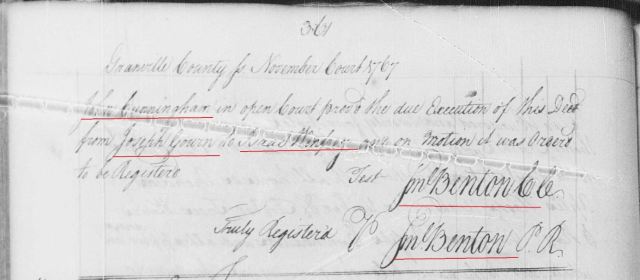 361
Granville County Ss. November Court 1767
John Cunningham in open Court prov'd the due Execution of this Deed
from Joseph Gowen to Isaac and on Motion it was Order'd
to be Register'd
Test Jno. Benton C C.
Truly Register'd Jno. Benton P. R.